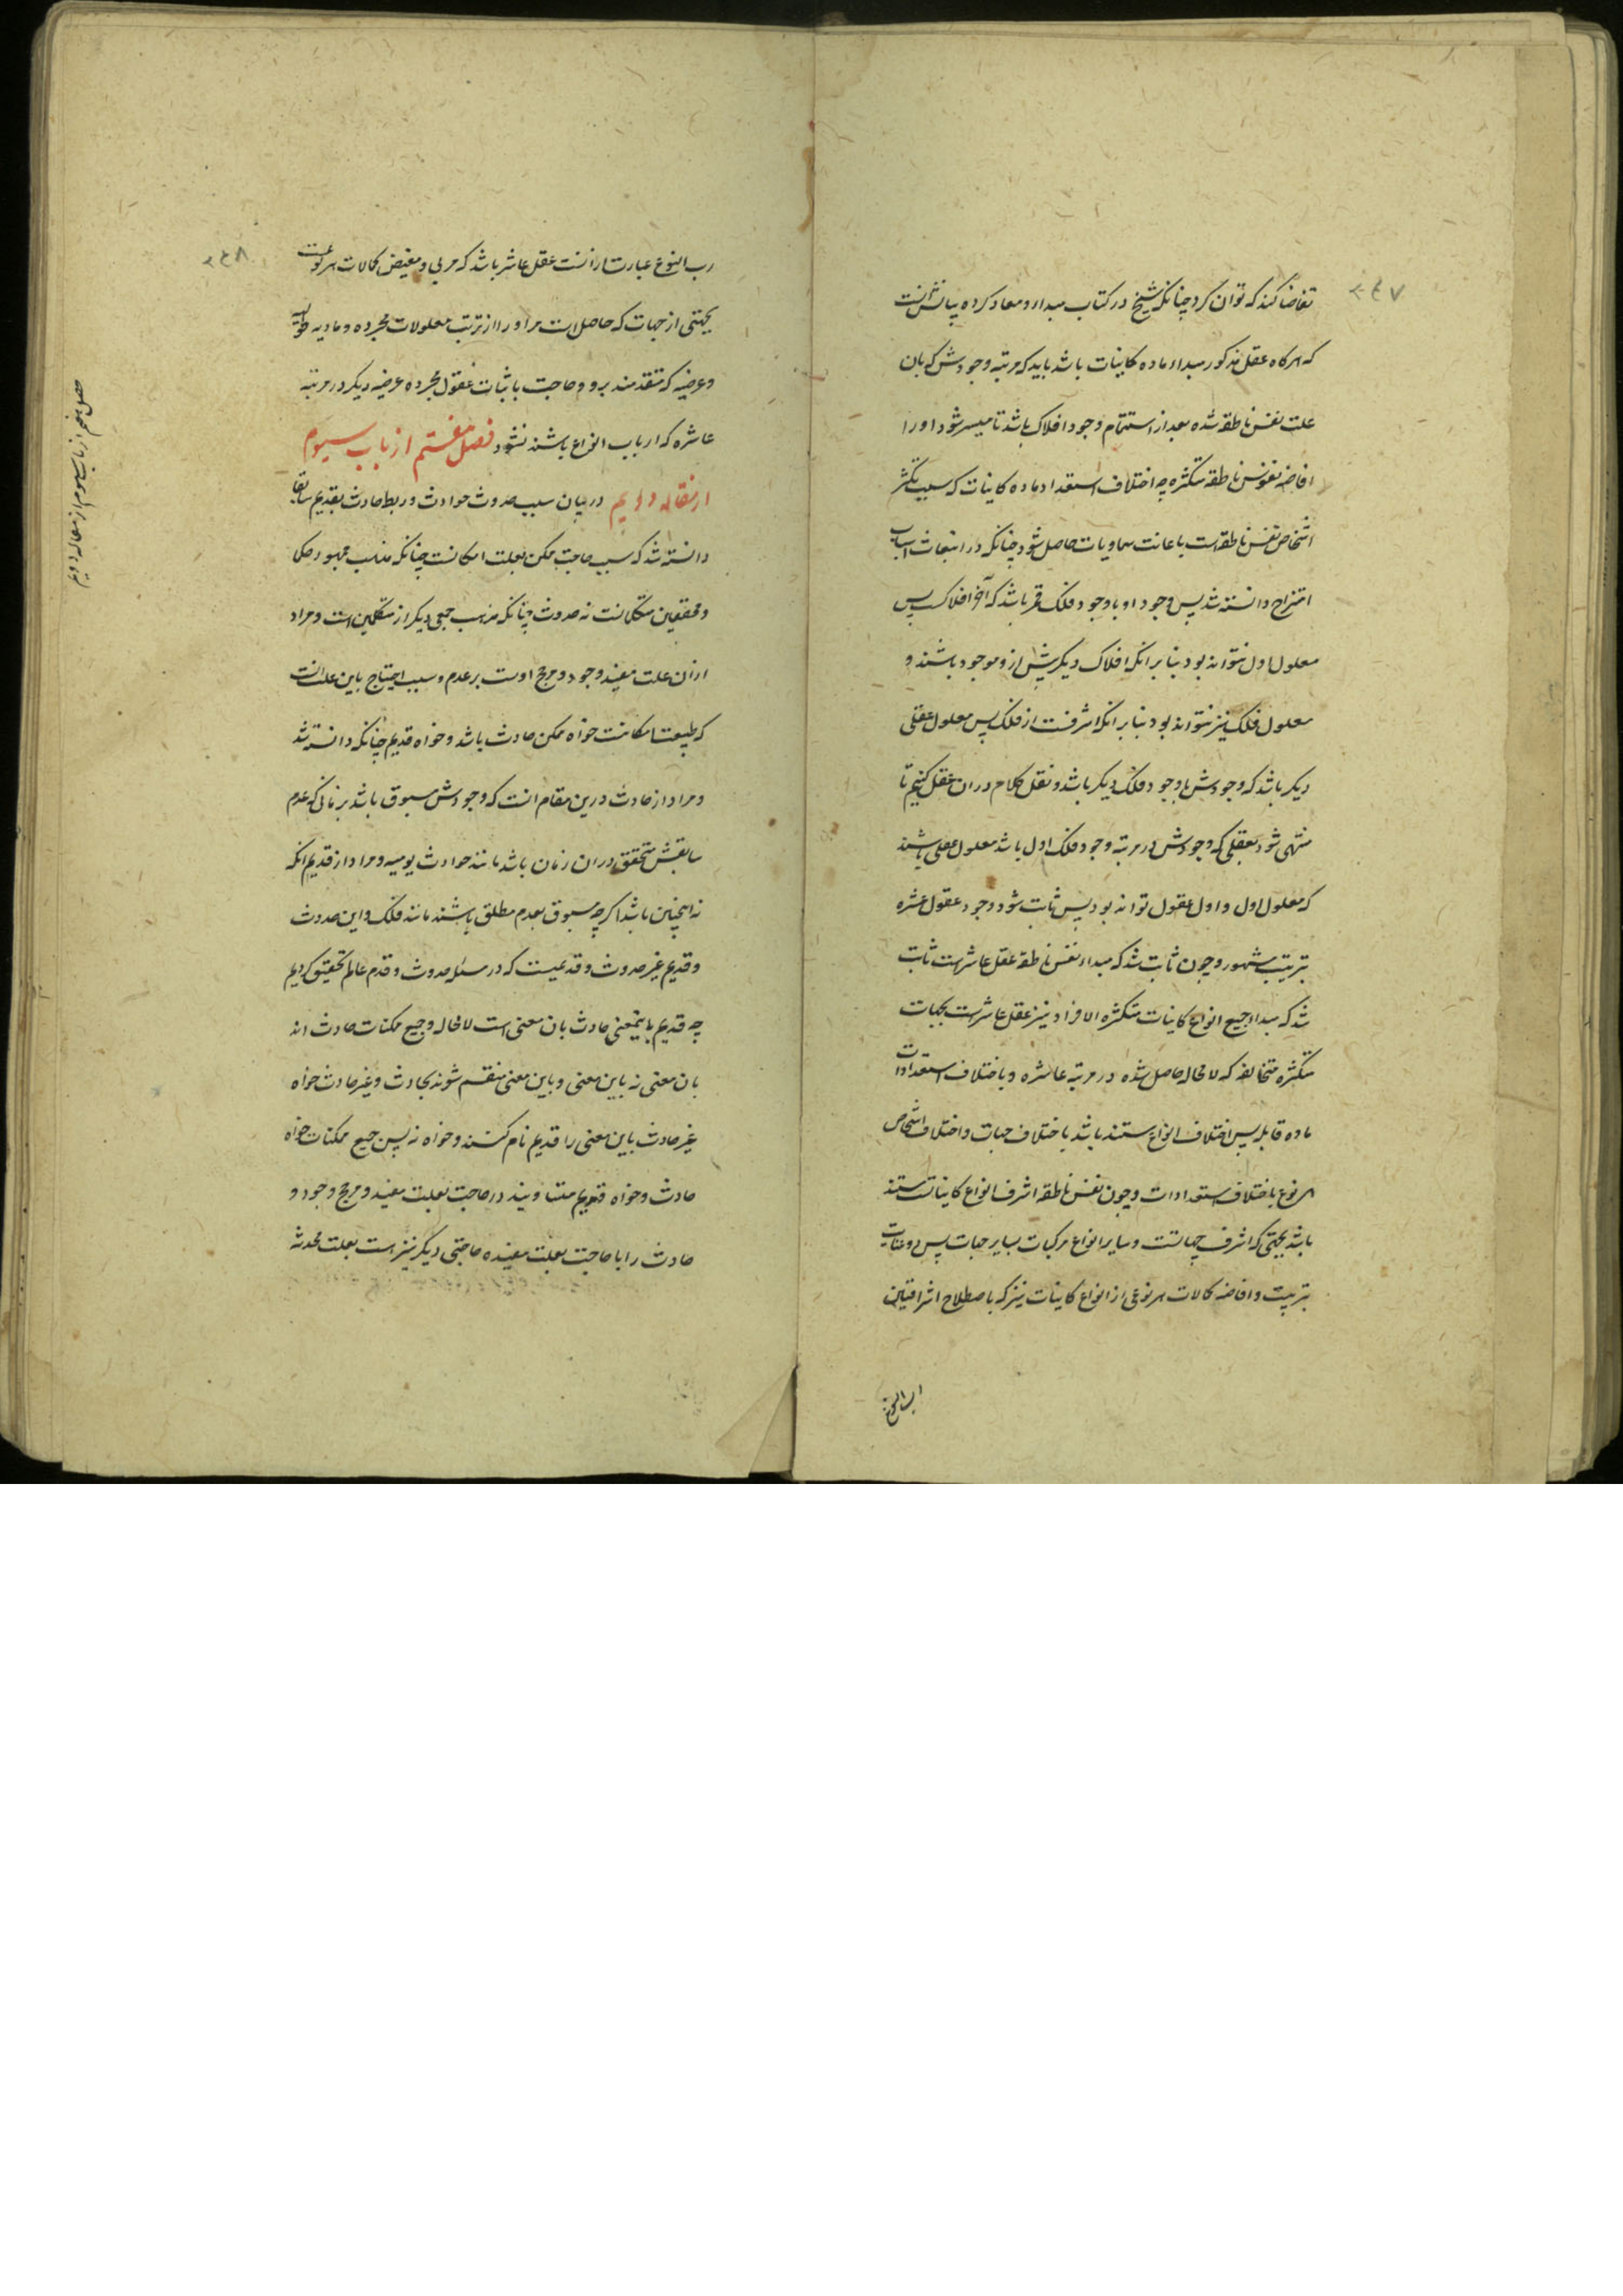 ۲۴۷
تقاضا کند که توان کرد چنانکه شیخ در کتاب مبداء و معاد کرده بیانش آنست
که هرکاه عقل مذکور مبداء ماده کاینات باشد باید که مرتبه وجودش که بان
علت نفس ناطقه شده بعد از استتمام وجود افلاک باشد تا میسر شود او را
افاضه نفوس ناطقه متکثره چه اختلاف استعداد ماده کاینات که سبب تکثر
اشخاص نفس ناطقه است باعانت سماویات حاصل شود چنانکه در انبعاث اسباب
امتزاج دانسته شد پس وجود او با وجود فلک قمر باشد که آخر افلاکست پس
معلول اول نتواند بود بنا بر انکه افلاک دیکر پیش ازو موجود باشند و
معلول فلک نیز نتواند بود بنا بر انکه اشرفست از فلک پس معلول عقلی
دیکر باشد که وجودش با وجود فلک دیکر باشد و نقل کلام در ان عقل کنیم تا
منتهی شود بعقلی که وجودش در مرتبه وجود فلک اول باشد معلول عقلی باشند
که معلول اول و اول عقول تواند بود پس ثابت شود وجود عقول عشره
بترتیب مشهور و چون ثابت شد که مبداء نفس ناطقه عقل عاشرست ثابت
شد که مبداء جمیع انواع کاینات متکثره الافراد نیز عقل عاشرست بجهات
متکثره متخالفه که لامحاله حاصل شده در مرتبه عاشره و باختلاف استعدادات
ماده قابله پس اختلاف انواع مستند باشد باختلاف جهات و اختلاف اشخاص
هر نوع باختلاف استعدادات و چون نفس ناطقه اشرف انواع کایناتست مستند
باشد بجهتی که اشرف جهاتست و سایر انواع مرکبات بسایر جهات پس
بتربیت و افاضه کمالات هر نوعی از انواع کاینات نیز که باصطلاح اشراقیین
۲۴۸
رب النوع عبارت ازانست عقل عاشر باشد که مربی و مفیض کمالات هر نوعست
بجهتی از جهات که حاصل است مر او را از ترتب معلولات مجرده و مادیه طولیه
و عرضیه که متقدمند برو و حاجت باثبات عقول مجرده عرضیه دیکر در مرتبه
عاشره که ارباب انواع باشند نشود فصل هفتم از باب سیوم
از مقاله دویم در بیان سبب حدوث حوادث و ربط حادث بقدیم سابقا
دانسته شد که سبب حاجت ممکن بعلت امکانست چنانکه مذهب جمهور حکما
و محققین متکلمانست نه حدوث چنانکه مذهب جمعی دیکر از متکلمین است و مراد
ازان علت مفید وجود و مرجح اوست بر عدم و سبب احتیاج باین علت انست
که طبیعت امکانست خواه ممکن حادث باشد و خواه قدیم چنانکه دانسته شد
و مراد از حادث درین مقام انست که وجودش مسبوق باشد بزمانی که عدم
سابقش متحقق در ان زمان باشد مانند حوادث یومیه و مراد از قدیم انکه
نه اینچنین باشد اکرچه مسبوق بعدم مطلق باشند مانند فلک و این حدوث
و قدیم غیر حدوث و قدمیست که در مسئله حدوث و قدم عالم تحقیق کردیم
چه قدیم باینمعنی حادث بان معنی است لامحاله و جمیع ممکنات حادث اند
بان معنی نه باین معنی و باین معنی منقسم شوند بحادث و غیر حادث خواه
غیر حادث باین معنی را قدیم نام کنند و خواه نه پس جمیع ممکنات خواه
حادث و خواه قدیم متساویند در حاجت بعلت مفید و مرجح وجود و
حادث را با حاجت بعلت مفیده حاجتی دیکر نیز هست بعلت محدثه
فصل هفتم از باب سیوم از مقاله دویم